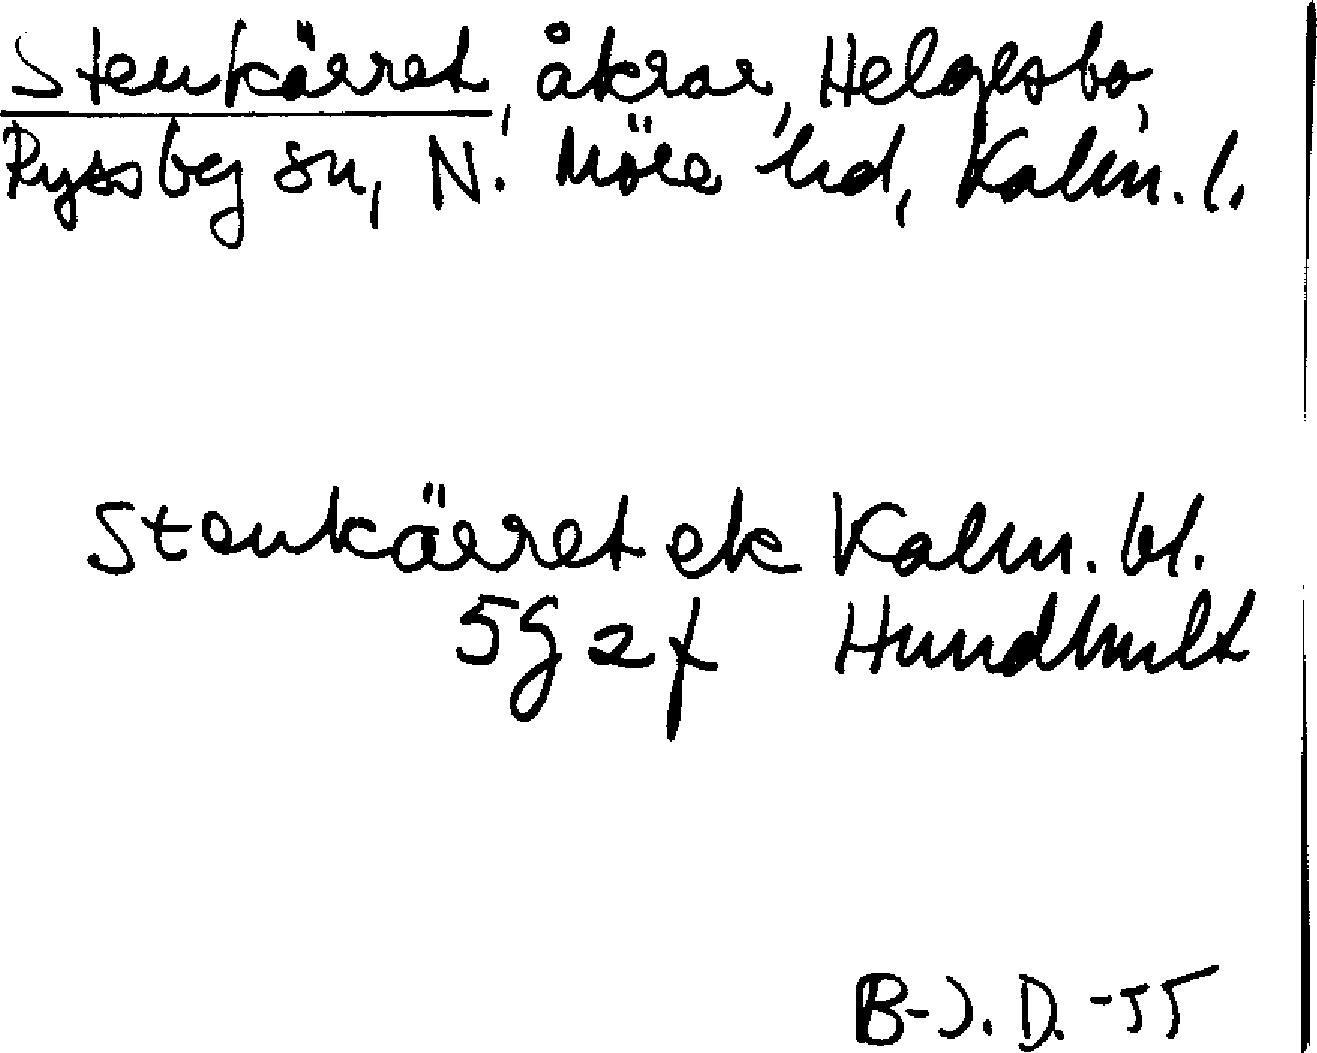 Stenkärret, åkrar, Helgesbo,
Ryssby sn, N. Möre hd, Kalm. l.
Stenkärret ek Kalm. bl.
5G 2f Hundhult
B-J. D. -55